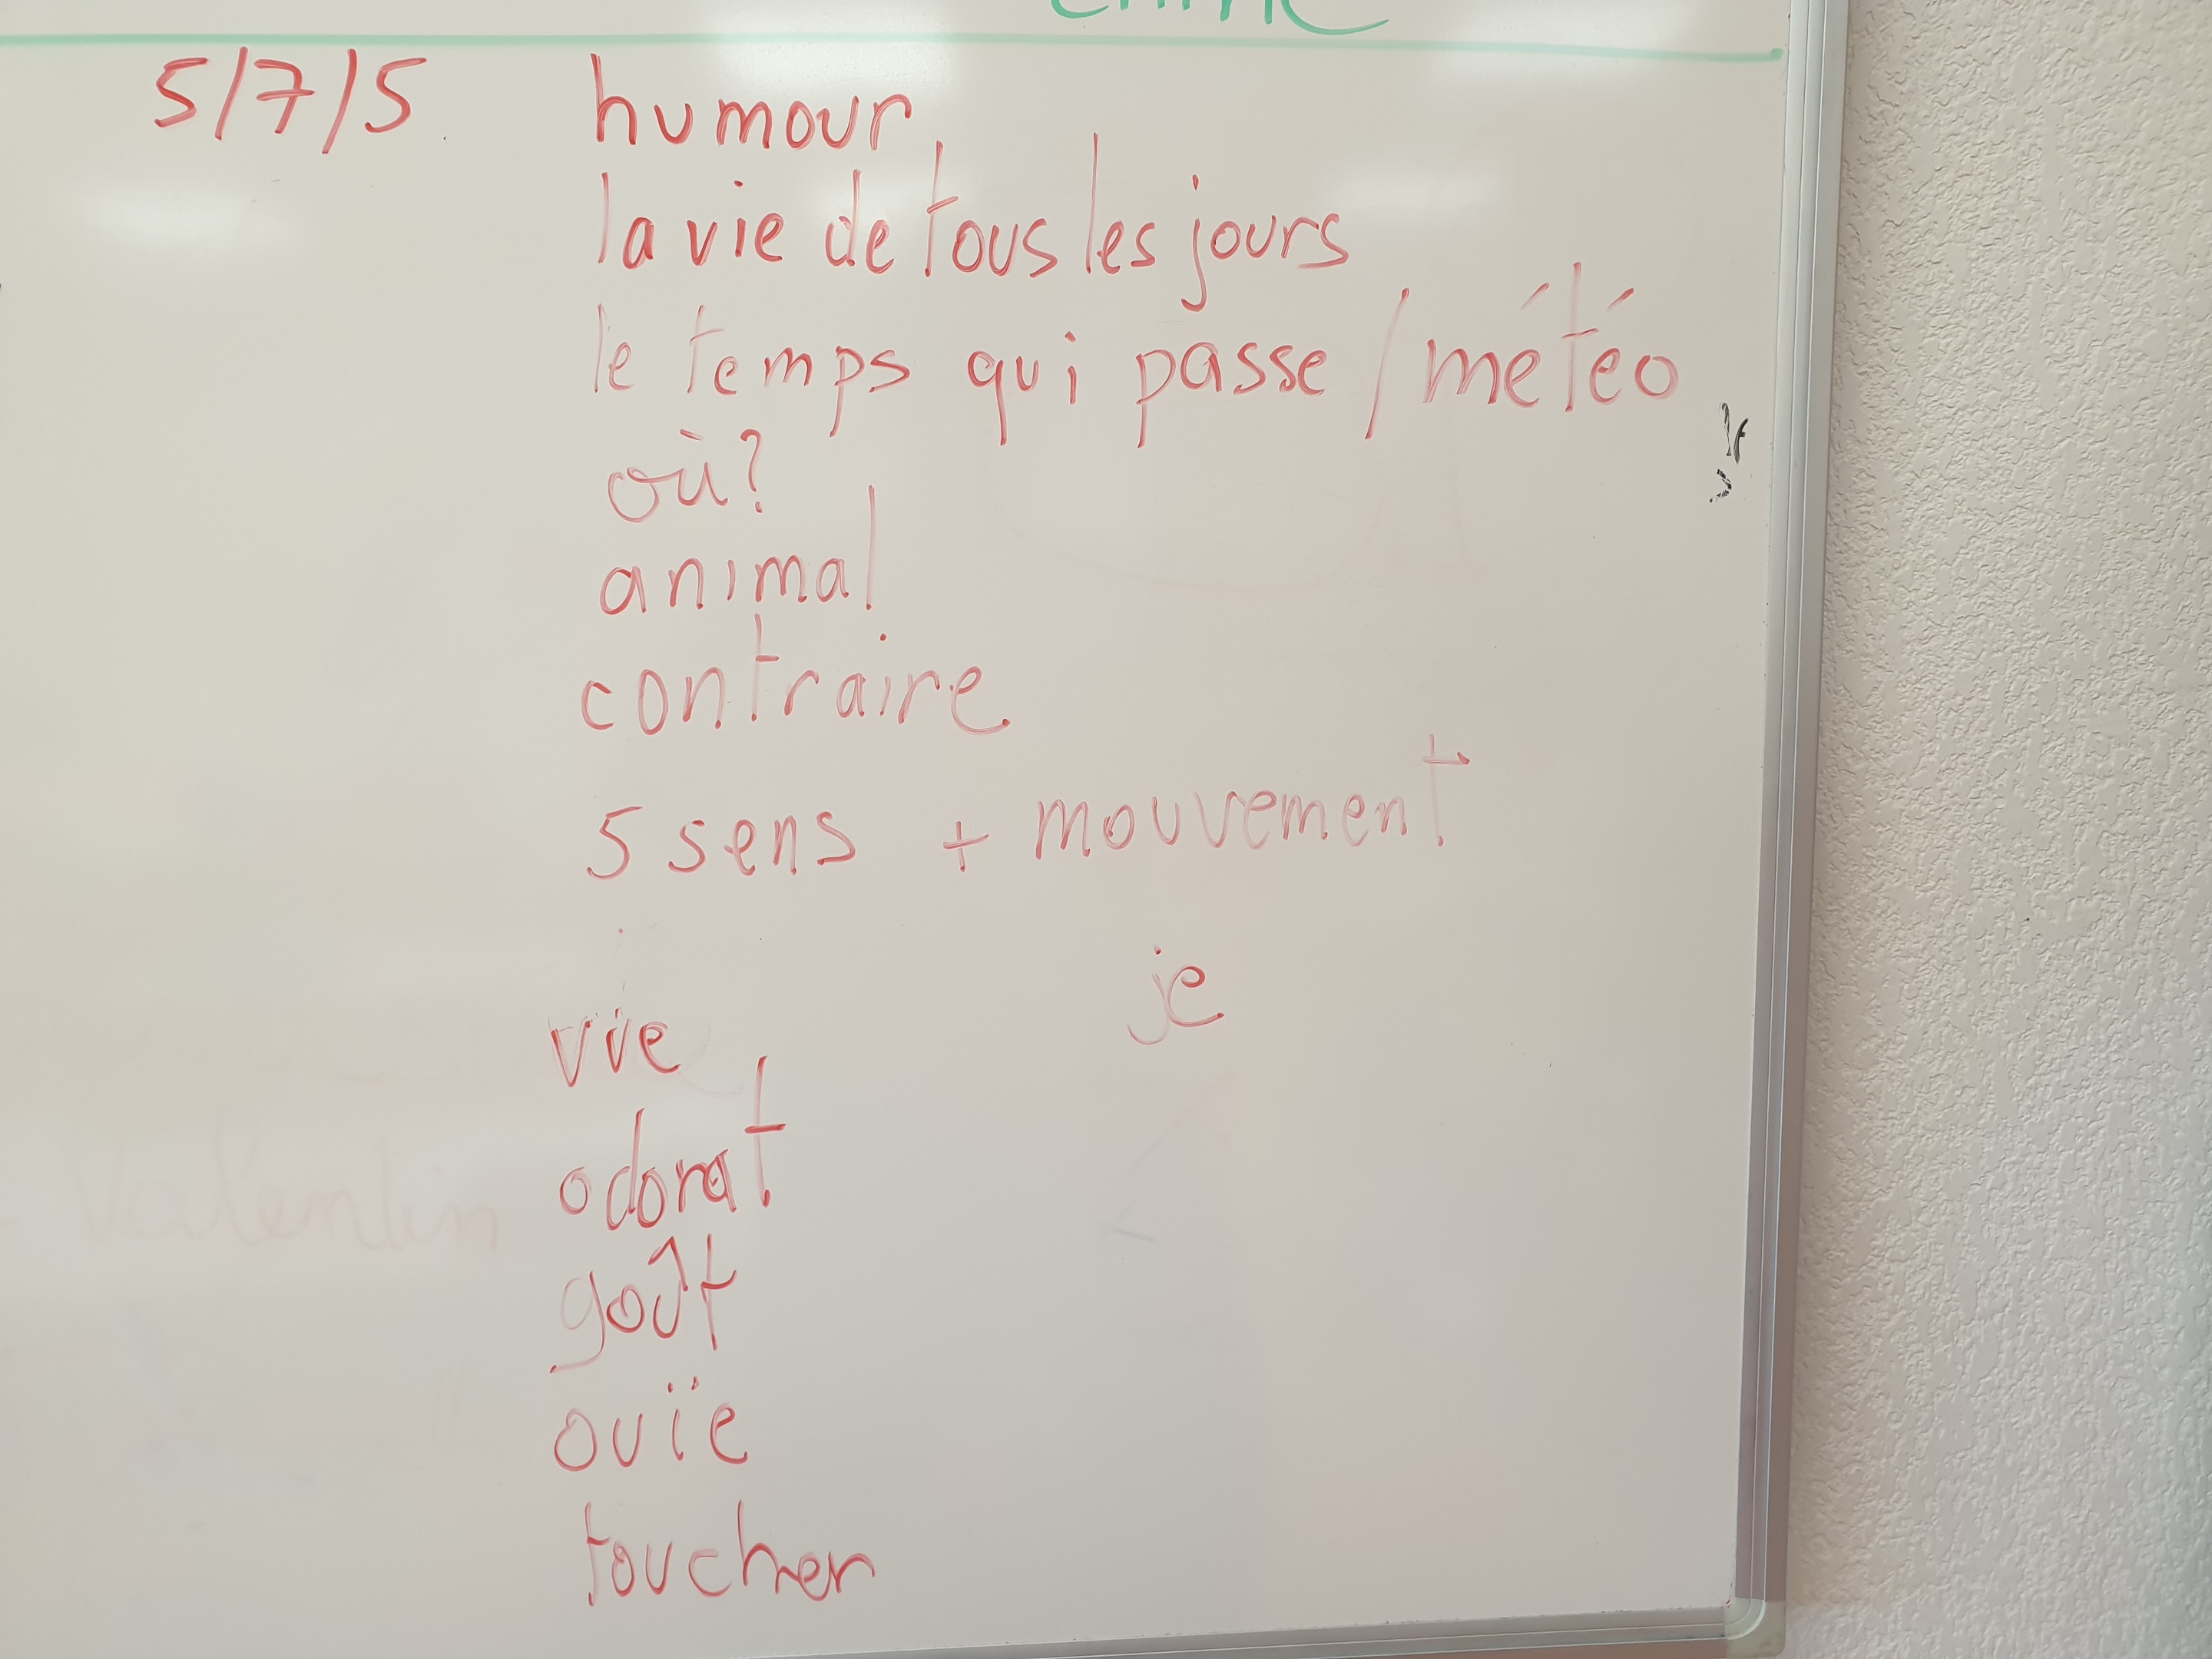 5/7/5 humour
la vie de tous les jours
le temps qui passe / météo
où?
animal
contraire
5 sens + mouvement
je
vue
odorat
Valentin
goût
ouïe
toucher